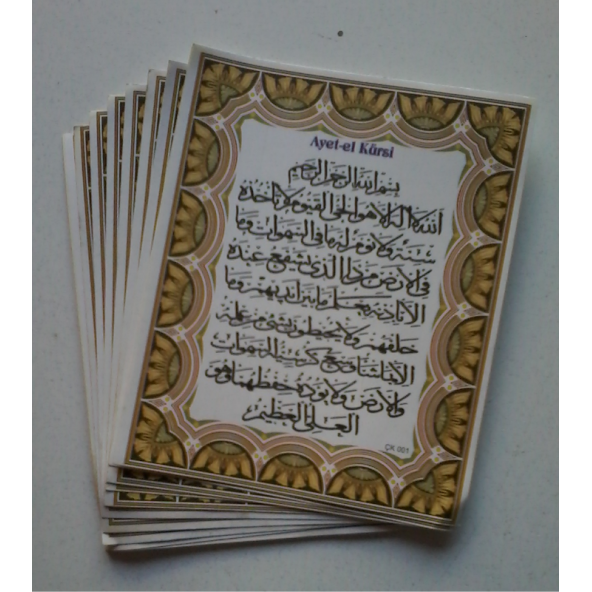 Ayet-el Kürsi
بسم الله الرحمن الرحيم
الله لا اله الا هو الحي القيوم لا تأخذه
سنة ولا نوم له ما في السموات وما
في الارض من ذا الذي يشفع عنده
الا باذنه يعلم ما بين ايديهم وما
خلفهم ولا يحيطون بشئ من علمه
الا بما شاء وسع كرسيه السموات
والارض ولا يؤده حفظهما وهو
العلي العظيم
ÇK 001